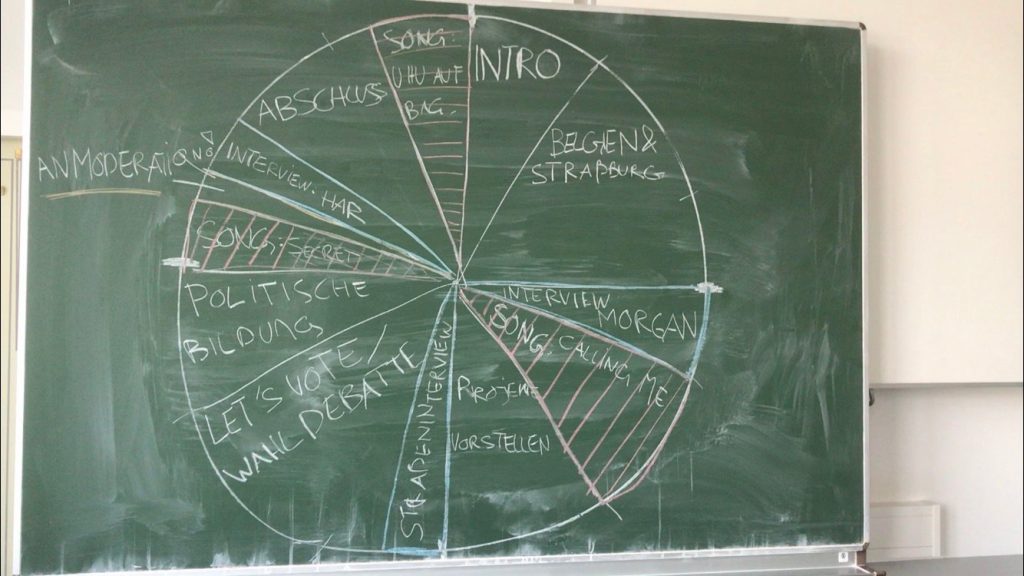 INTRO
BELGIEN &
STRAßBURG
INTERVIEW
MORGAN
SONG: CALLING ME
PROJEKTE
VORSTELLEN
STRAßENINTERVIEW
LET'S VOTE /
WAHL-DEBATTE
POLITISCHE
BILDUNG
SONG: SECRET
ANMODERATION
INTERVIEW. HAR
ABSCHLUSS
SONG:
UHU AUF
BAG.